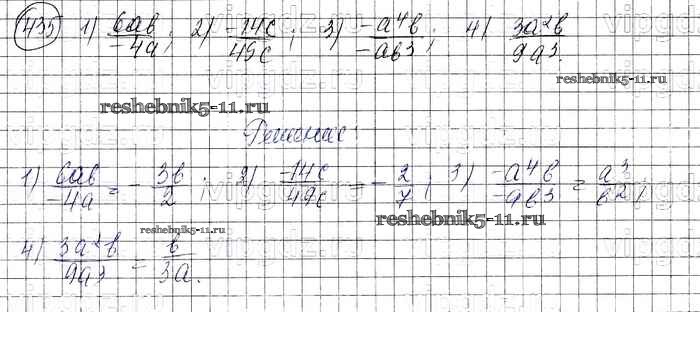 435 1) 6ab/-4a; 2) -14c/49c; 3) -a⁴b/-ab3; 4) 3a²b/9a3.
reshebnik5-11.ru
Решение:
1) 6ab/-4a = -3b/2; 2) -14c/49c = -2/7; 3) -a⁴b/-ab3 = a³/b2;
reshebnik5-11.ru
reshebnik5-11.ru
4) 3a²b/9a3 = b/3a.